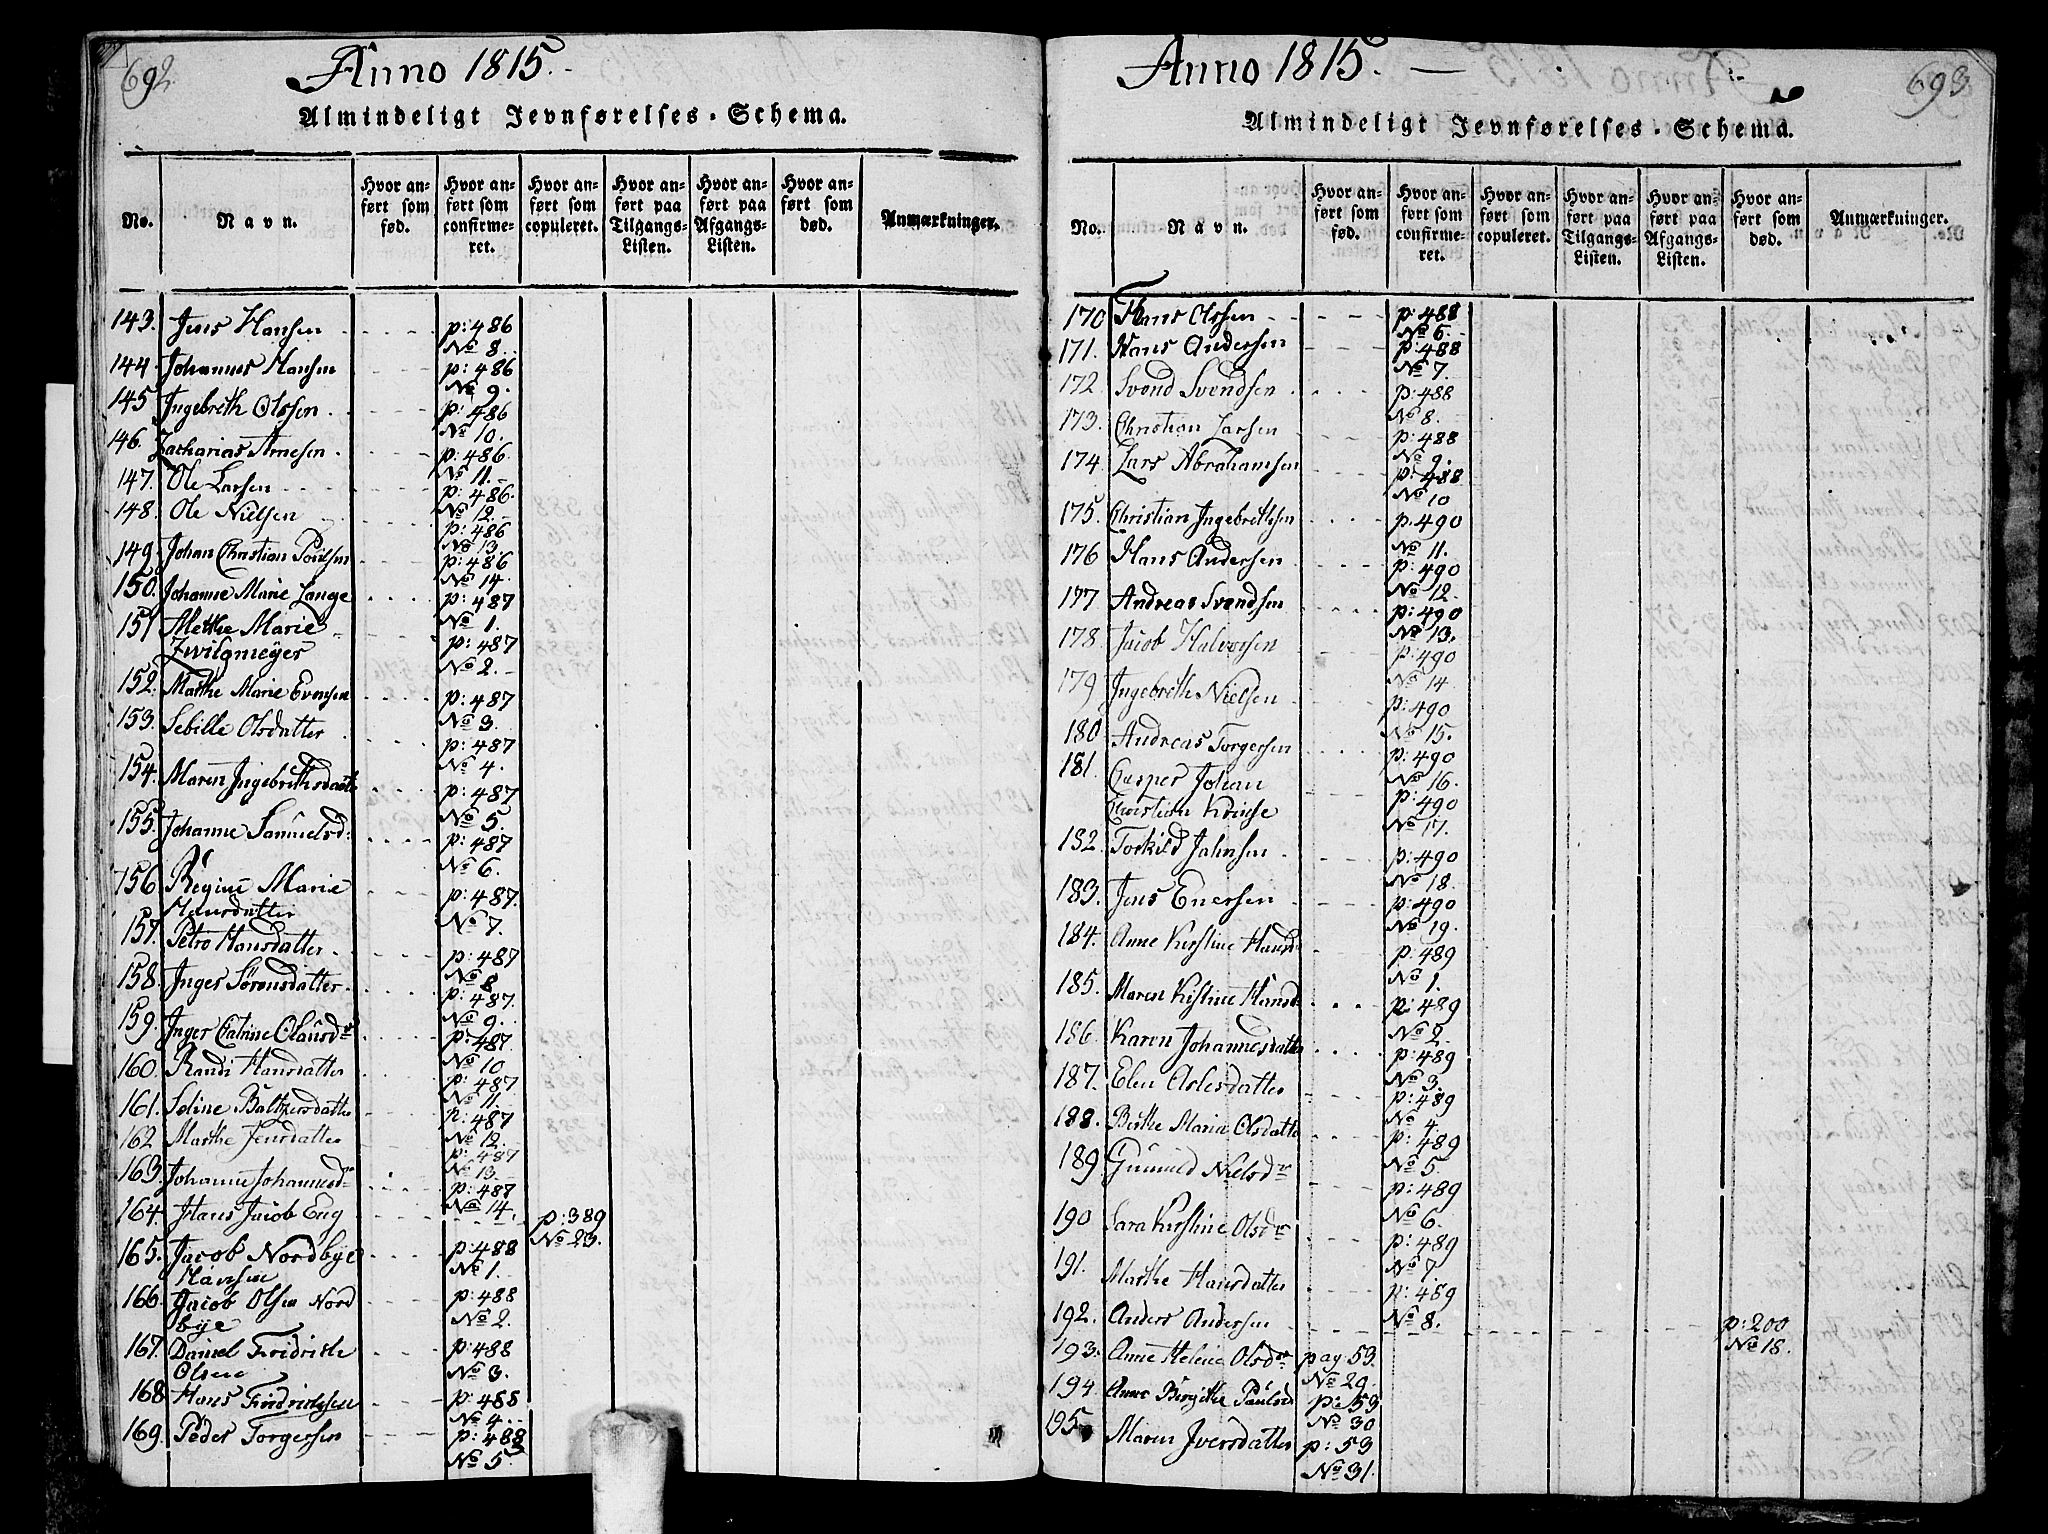 692
Anno 1815.
Almindeligt Jevnførelses-Schema.
No.
Navn.
Hvor anført som fød.
Hvor anført som confirmeret.
Hvor anført som copuleret.
Hvor anført paa Tilgangs-Listen.
Hvor anført paa Afgangs-Listen.
Hvor anført som død.
Anmærkninger.
143. Jens Hansen p: 486
No 8.
144. Johannes Hansen p: 486
No 9.
145 Ingebreth Olssen p: 486
No 10.
146. Zacharias Arnesen p: 486
No 11.
147. Ole Larsen p: 486.
No 12.
148. Ole Nielsen p: 486
No 13.
149. Johan Christian Poulsen p: 486
No 14.
150. Johanne Marie Lange p: 487
No 1.
151 Mette Marie p: 487
Zwilgmeyer No 2.
152. Marthe Marie Evensen p: 487
No 3.
153. Sebille Olsdatter p: 487
No 4.
154. Maren Ingebrethsdatt p: 487
No 5.
155. Johanne Samuelsd: p: 487
No 6.
156 Regine Marie p: 487.
Hansdatter No 7.
157. Petro Hansdatter p: 487
No 8
158. Inger Sörensdatter p: 487.
No 9.
159. Inger Catrine Clausdr p: 487.
No 10
160. Randi Hansdatter p: 487
No 11.
161. Seline Baltzersdatter p: 487
No 12.
162 Marthe Jensdatter p: 487
No 13.
163. Johanne Johannesd p: 487
No 14.
164. Hans Jacob Eng p: 389
No 23.
165. Jacob Nordbye p: 488
Hansen No 1.
166. Jacob Olsen Nord p: 488
bye No 2.
167. Daniel Fridrich p: 488
Olsen No 3.
168 Hans Fridrichsen p: 488
No 4.
169. Peder Torgersen p: 488
No 5.
693
Anno 1815.
Almindeligt Jevnførelses-Schema.
No.
Navn.
Hvor anført som fød.
Hvor anført som confirmeret.
Hvor anført som copuleret.
Hvor anført paa Tilgangs-Listen.
Hvor anført paa Afgangs-Listen.
Hvor anført som død.
Anmærkninger.
170 Hans Olssen p: 488
No 6.
171. Hans Andersen p: 488
No 7.
172 Svend Svendsen p: 488
No 8.
173. Christian Larsen p: 488
No 9.
174 Lars Abrahamsen p: 488
No 10
175. Christian Ingebrethsen p. 490
No 11.
176 Hans Andersen p: 490
No 12.
177 Andreas Svendsen p: 490
No 13.
178. Jacob Halvorsen p: 490
No 14
179 Ingebreth Nielsen p: 490
No 15.
180 Andreas Torgersen p: 490
No 16.
181. Casper Johan p: 490
Christian Kruse No 17.
182. Torkild Jahnsen p: 490
No 18.
183. Jens Enersen p: 490
No 19.
184. Anne Kirstine Hansd p: 489
No 1.
185. Maren Kistine Hansd p: 489
No 2.
186. Karen Johannesdatter p: 489
No 3.
187. Elen Aslesdatter p: 489
No 4.
188. Birthe Maria Olsdatte p: 489
No 5.
189 Gunnild Nielsdr p: 489
No 6.
190 Sara Kirstine Olsdr p: 489
No 7
191. Marthe Hansdatter p: 489
No 8.
192. Anders Andersen p: 200
No 18.
193. Anne Helene Olsdr pag: 53.
No 29.
194. Anne Birgithe Paulsd p: 53
No 30
195 Maren Iversdatter p: 53
No 31.